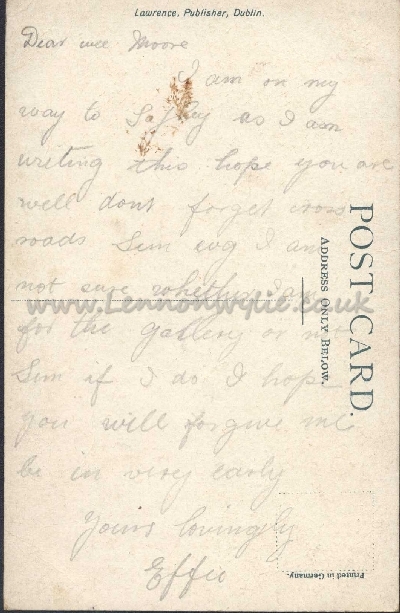 Lawrence, Publisher, Dublin.
Dear wee Moore
I am on my
way to as I am
writing this hope you are
well dont forget cross
roads Sun evg I am
not sure whether I am
for the or not
Sun if I do I hope
you will forgive me
be in very early
Yours lovingly
Effie
POST CARD.
ADDRESS ONLY BELOW.
Printed in Germany.
www.Lennonwylie.co.uk